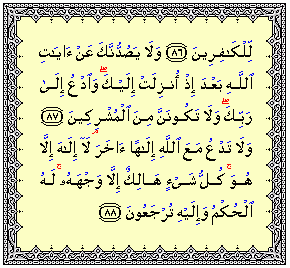 لِّلْكَـٰفِرِينَ ﴿٨٦﴾ وَلَا يَصُدُّنَّكَ عَنْ ءَايَـٰتِ
ٱللَّـهِ بَعْدَ إِذْ أُنزِلَتْ إِلَيْكَ ۖ وَٱدْعُ إِلَىٰ
رَبِّكَ ۖ وَلَا تَكُونَنَّ مِنَ ٱلْمُشْرِكِينَ ﴿٨٧﴾
وَلَا تَدْعُ مَعَ ٱللَّهِ إِلَـٰهًا ءَاخَرَ ۘ لَآ إِلَـٰهَ إِلَّا
هُوَ ۚ كُلُّ شَىْءٍ هَالِكٌ إِلَّا وَجْهَهُۥ ۚ لَهُ
ٱلْحُكْمُ وَإِلَيْهِ تُرْجَعُونَ ﴿٨٨﴾